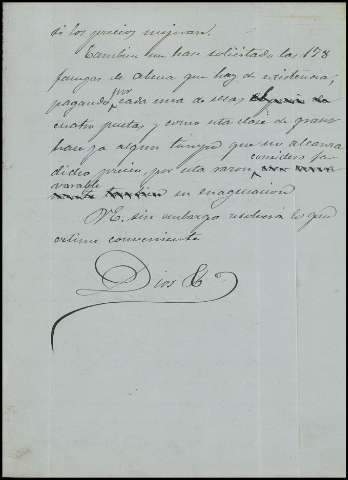 si los precios mejoran.
Tambien me han solicitado las 178
fanegas de abena que hay de existencia,
pagando por cada una de ellas
cuatro pesetas y como esta clase de grano
hace ya algun tiempo que no alcanza
dicho precio, por esta razon considero fa-
vorable su enagenacion
V.E. sin embargo resolverá lo que
estime conveniente
Dios &ª